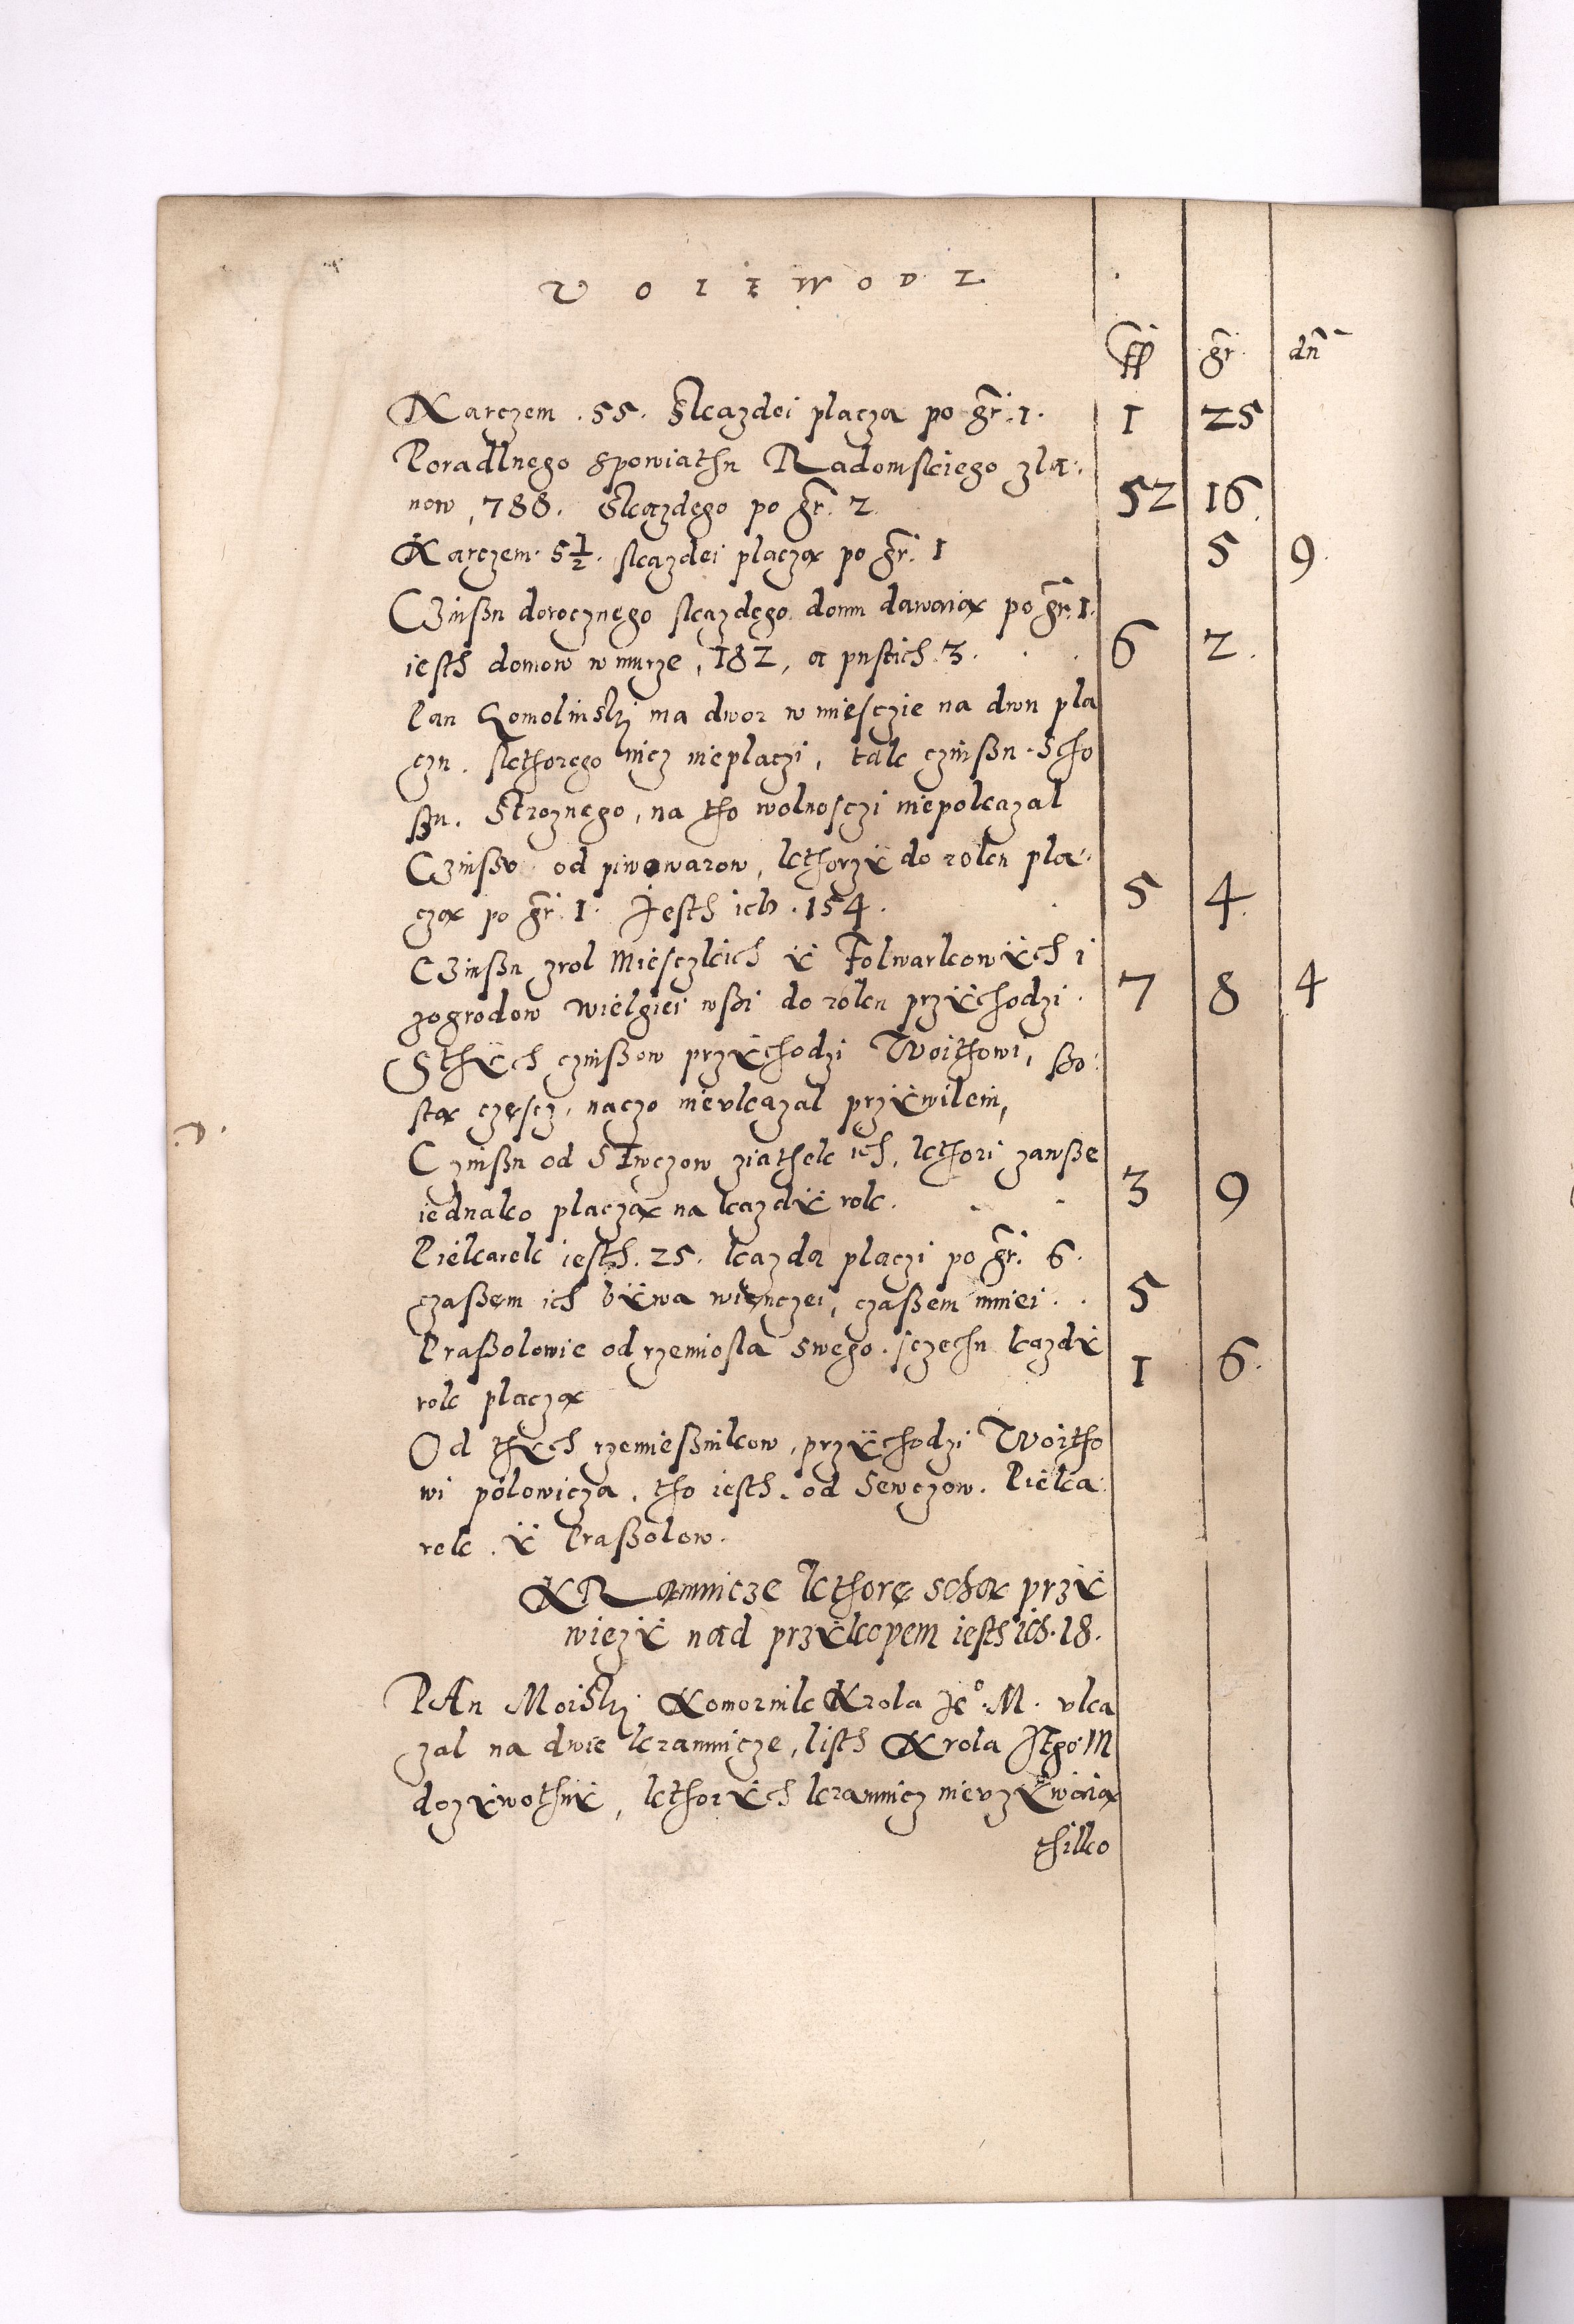 V O I E W O D Z
ff gr dn
Karczem . 55 . Skazdei placza po gr. 1. 1 25
Poradlnego spowiathu Radomskiego zla:
now , 788 . Skazdego po gr. 2. 52 16
Karczem 5 1/2 . skazdei placzą po gr. 1 5 9
Czinßu dorocznego skazdego domu dawaią po gr. 1.
iesth domow w murze , 182 , a pustich . 3 . 6 2
Pan Gomolinski ma dwor w miesczie na dwu pla
czu . skthorego nicz nieplaczi , tak czinßu . Scho
ßu . Stroznego , na tho wolnosczi niepokazal
Czinßu od piwowarow , kthorzÿ do roku pla:
czą po gr. 1. Jesth ich . 154 . 5 4
Czinßu zrol Miesczkich ÿ Folwarkowÿch i
zogrodow wielgiei wßi do roku przÿchodzi . 7 8 4
Sthÿch czinßow przÿchodzi Woithowi , ßo:
stą częscz , naczo nieukazal przÿwileiu ,
Czinßu od Szwczow ziathek ich , kthori zawße
iednako placzą na kazdÿ rok . 3 9
Piekarek iesth . 25 . kazda placzi po gr. 6 .
czaßem ich bÿwa wienczei , czaßem mniei . . 5
Praßolowie od rzemiosla swego . sczechu kazdÿ
rok placzą 1 6
Od thÿch rzemießnikow , przÿchodzi Woitho
wi polowicza , tho iesth . od Sewczow . Pieka:
rek . ÿ Praßolow .
KRamnicze kthorę schą przÿ
wiezÿ nad przÿkopem iesth ich . 18 .
PAn Moiski Komornik Krola Je° M. uka
zal na dwie kramnicze , listh Krola Jego M
dozÿwothnÿ , kthorÿch kramnicz nieuzÿwaią
thilko